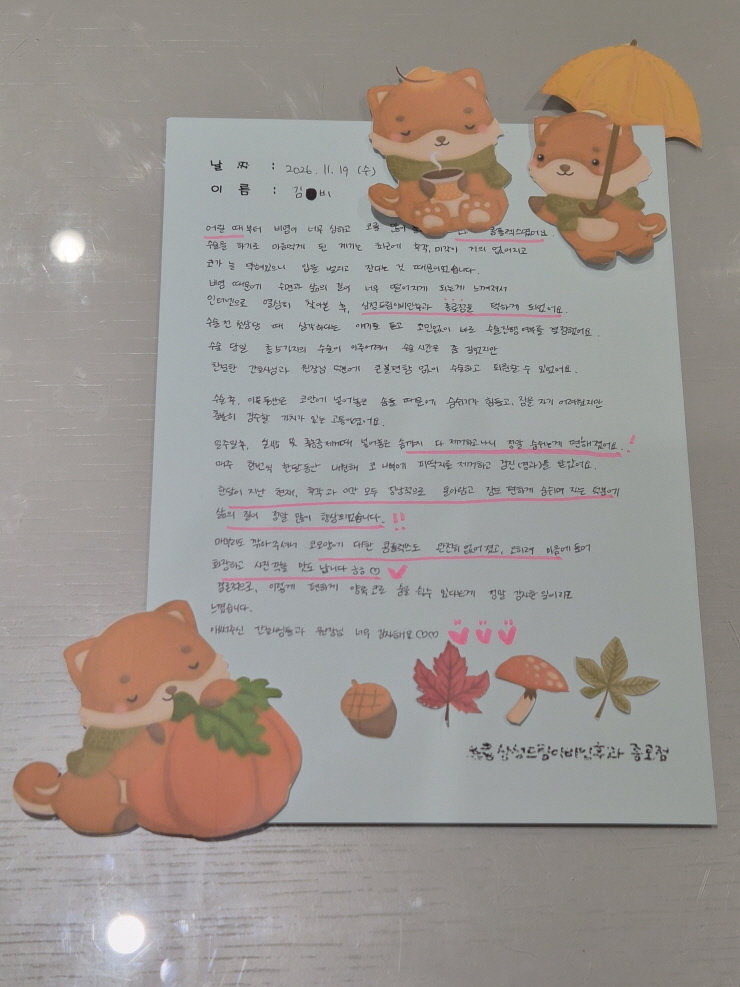 날 짜 : 2026. 11. 19 (수)
이 름 : 김 비
어릴 때부터 비염이 너무 심하고 코를 많이 콤플렉스였어요.
수술을 하기로 마음먹게 된 계기는 최근에 후각, 미각이 거의 없어지고
코가 늘 막혀있으니 입을 벌리고 잔다는 것 때문이었습니다.
비염 때문에 수면과 삶의 질이 너무 떨어지게 되는게 느껴져서
인터넷으로 열심히 찾아본 후, 삼성드림이비인후과 종로점을 택하게 되었어요.
수술 전 첫상담 때 심각하다는 얘기를 듣고 고민없이 바로 수술진행 여부를 결정했어요.
수술 당일 총 5가지의 수술이 이루어져서 수술 시간은 좀 길었지만
친절한 간호사님과 원장님 덕분에 큰 불편함 없이 수술하고 퇴원할 수 있었어요.
수술 후, 이틀동안은 코안에 넣어놓은 솜들 때문에 숨쉬기가 힘들고, 잠을 자기 어려웠지만
충분히 감수할 가치가 있는 고통이었어요.
일주일후, 실밥 및 넣어놓은 솜까지 다 제거하고나니 정말 숨쉬는게 편해졌어요.!
매주 한번씩 한달동안 내원해 코 내에 피딱지를 제거하고 검진(경과)을 받았어요.
한달이 지난 현재, 후각과 미각 모두 정상적으로 돌아왔고 잠도 편하게 숨쉬며 자는 덕분에
삶의 질이 정말 많이 향상되었습니다.!!
매부리도 깎아주셔서 코모양에 대한 콤플렉스도 완전히 없어졌고, 오히려 마음에 들어
화장하고 사진 찍을 맛도 납니다 ㅎㅎ♡
결론적으로, 이렇게 편하게 양쪽 코로 숨을 쉴수 있다는게 정말 감사한 일이라고
느낍니다.
애써주신 간호사님들과 원장님 너무 감사해요♡♡
삼성드림이비인후과 종로점